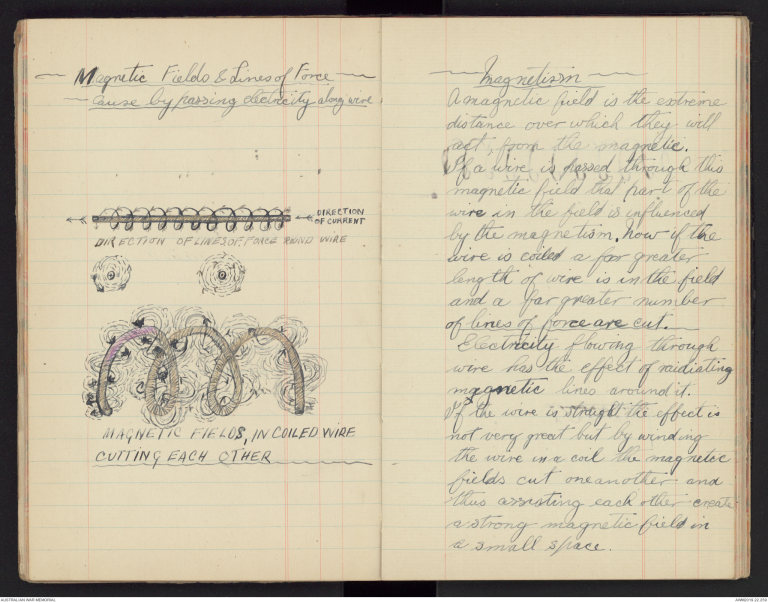 Magnetic Fields & Lines of Force
cause by passing electricity along wire
DIRECTION
OF CURRENT
DIRECTION OF LINES OF FORCE ROUND WIRE
MAGNETIC FIELDS, IN COILED WIRE
CUTTING EACH OTHER
Magnetism
A magnetic field is the extreme
distance over which they will
act, from the magnetic.
If a wire is passed through this
magnetic field that part of the
wire in the field is influenced
by the magnetism, now if the
wire is coiled a far greater
length of wire is in the field
and a far greater number
of lines of force are cut.
Electricity flowing through
wire has the effect of raidiating
magnetic lines around it.
If the wire is straight the effect is
not very great but by winding
the wire in a coil the magnetic
fields cut one another and
thus assisting each other create
a strong magnetic field in
a small space.
AUSTRALIAN WAR MEMORIAL